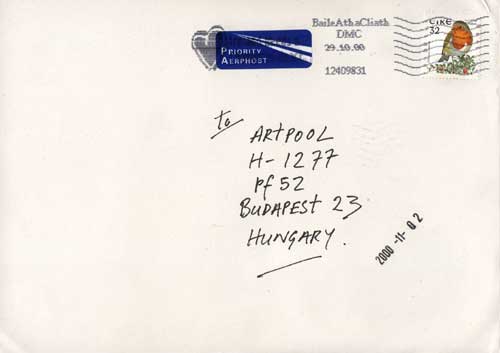 BaileAthaCliath
DMC
29.10.00
12409831
PRIORITY
AERPHOST
ÉIRE
32
to
ARTPOOL
H-1277
Pf 52
BUDAPEST 23
HUNGARY.
2000 -11- 02